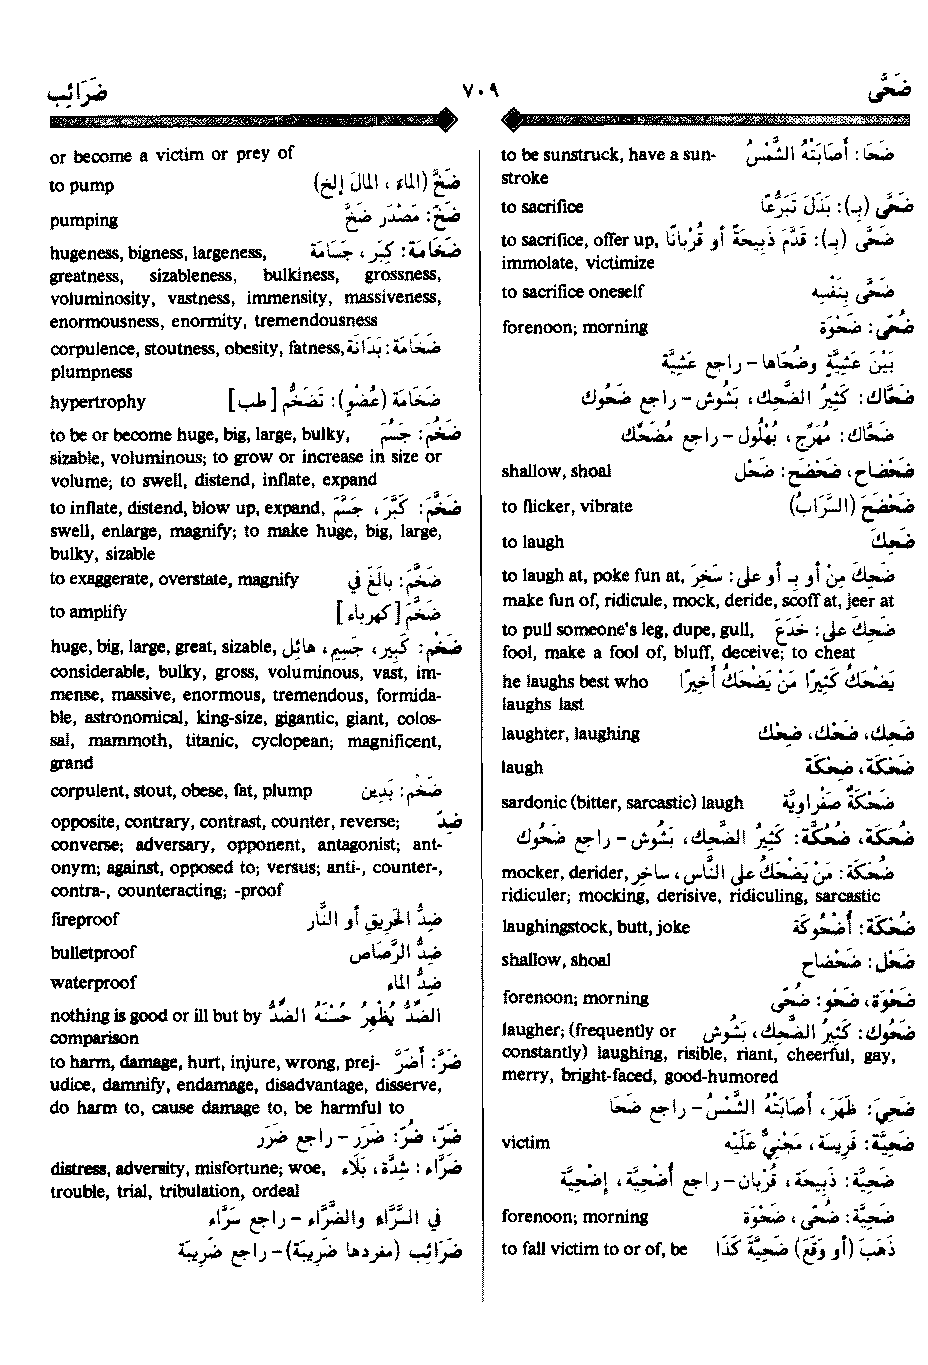 ضَحَّى ٧٠٩ ضَرَائِب
ضَحَا: أَصَابَتْهُ الشَّمْسُ to be sunstruck, have a sun-
stroke
ضَحَّى (بـ): بَذَلَ تَبَرُّعًا to sacrifice
ضَحَّى (بـ): قَدَّمَ ذَبِيحَةً أو قُرْبَانًا to sacrifice, offer up,
immolate, victimize
ضَحَّى بِنَفْسِهِ to sacrifice oneself
ضُحًى: ضَحْوَة forenoon; morning
بَيْنَ عَشِيَّةٍ وضُحَاها – راجع عَشِيَّة
ضَحَّاك: كَثِيرُ الضَّحِك، بَشُوش – راجع ضَحُوك
ضَحَّاك: مُهَرِّج، بُهْلُول – راجع مُضَحِّك
ضَحْضَاح، ضَحْضَح: ضَحْل shallow, shoal
ضَحْضَحَ (السَّرَابُ) to flicker, vibrate
ضَحِكَ to laugh
ضَحِكَ مِنْ أو بـ أو على: سَخِرَ to laugh at, poke fun at,
make fun of, ridicule, mock, deride, scoff at, jeer at
ضَحِكَ على: خَدَعَ to pull someone's leg, dupe, gull,
fool, make a fool of, bluff, deceive; to cheat
يَضْحَكُ كَثِيرًا مَنْ يَضْحَكُ أَخِيرًا he laughs best who
laughs last
ضَحِك، ضَحْك، ضِحْك laughter, laughing
ضَحْكَة، ضِحْكَة laugh
ضَحْكَةٌ صَفْرَاوِيَّة sardonic (bitter, sarcastic) laugh
ضُحَكَة، ضُحُكَّة: كَثِيرُ الضَّحِك، بَشُوش – راجع ضَحُوك
ضُحَكَة: مَنْ يَضْحَكُ على النَّاس، ساخِر mocker, derider,
ridiculer; mocking, derisive, ridiculing, sarcastic
ضُحْكَة: أُضْحُوكَة laughingstock, butt, joke
ضَحْل: ضَحْضَاح shallow, shoal
ضَحْوَة، ضَحْو: ضُحًى forenoon; morning
ضَحُوك: كَثِيرُ الضَّحِك، بَشُوش laugher; (frequently or
constantly) laughing, risible, riant, cheerful, gay,
merry, bright-faced, good-humored
ضَحِيَ: ظَهَرَ، أَصَابَتْهُ الشَّمْسُ – راجع ضَحَا
ضَحِيَّة: فَرِيسَة، مَجْنِيٌّ عَلَيْه victim
ضَحِيَّة: ذَبِيحَة، قُرْبَان – راجع أُضْحِيَّة، إضْحِيَّة
ضَحِيَّة: ضُحًى، ضَحْوَة forenoon; morning
ذَهَبَ (أو وَقَعَ) ضَحِيَّةَ كَذَا to fall victim to or of, be
or become a victim or prey of
ضَخَّ (الماءَ، المالَ إلخ) to pump
ضَخّ: مَصْدَر ضَخَّ pumping
ضَخَامَة: كِبَر، جَسَامَة hugeness, bigness, largeness,
greatness, sizableness, bulkiness, grossness,
voluminosity, vastness, immensity, massiveness,
enormousness, enormity, tremendousness
ضَخَامَة: بَدَانَة corpulence, stoutness, obesity, fatness,
plumpness
ضَخَامَة (عُضْو): تَضَخُّم [طب] hypertrophy
ضَخُمَ: جَسُمَ to be or become huge, big, large, bulky,
sizable, voluminous; to grow or increase in size or
volume; to swell, distend, inflate, expand
ضَخَّمَ: كَبَّرَ، جَسَّمَ to inflate, distend, blow up, expand,
swell, enlarge, magnify; to make huge, big, large,
bulky, sizable
ضَخَّمَ: بالَغَ في to exaggerate, overstate, magnify
ضَخَّمَ [كهرباء] to amplify
ضَخْم: كَبِير، جَسِيم، هائِل huge, big, large, great, sizable,
considerable, bulky, gross, voluminous, vast, im-
mense, massive, enormous, tremendous, formida-
ble, astronomical, king-size, gigantic, giant, colos-
sal, mammoth, titanic, cyclopean; magnificent,
grand
ضَخْم: بَدِين corpulent, stout, obese, fat, plump
ضِدّ opposite, contrary, contrast, counter, reverse;
converse; adversary, opponent, antagonist; ant-
onym; against, opposed to; versus; anti-, counter-,
contra-, counteracting; -proof
ضِدُّ الحَرِيق أو النَّار fireproof
ضِدُّ الرَّصَاص bulletproof
ضِدُّ الماء waterproof
الضِّدُّ يُظْهِرُ حُسْنَهُ الضِّدُّ nothing is good or ill but by
comparison
ضَرَّ: أَضَرَّ to harm, damage, hurt, injure, wrong, prej-
udice, damnify, endamage, disadvantage, disserve,
do harm to, cause damage to, be harmful to
ضَرّ، ضُرّ: ضَرَر – راجع ضَرَر
ضَرَّاء: شِدَّة، بَلَاء distress, adversity, misfortune; woe,
trouble, trial, tribulation, ordeal
في السَّرَّاء والضَّرَّاء – راجع سَرَّاء
ضَرَائِب (مفردها ضَرِيبَة) – راجع ضَرِيبَة